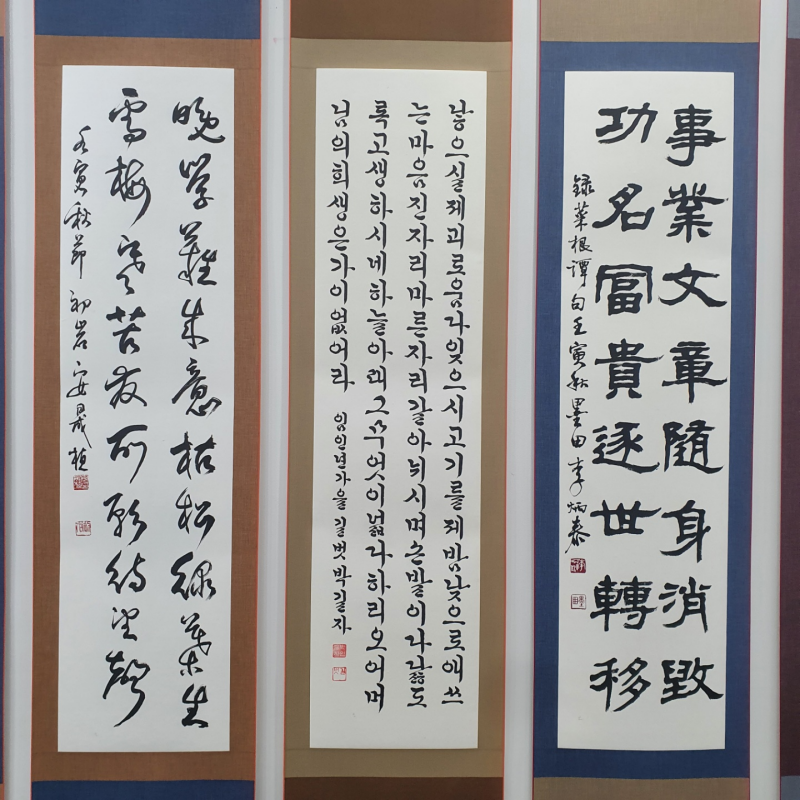 事業文章隨身消毀
功名冨貴逐世轉移
録菜根譚句壬寅秋墨田李炳泰
낳으실제괴로움다잊으시고기를제밤낮으로애쓰
는마음진자리마른자리갈아뉘시며손발이다닳도
록고생하시네하늘아래그무엇이넓다하리오어머
님의희생은가이없어라 임인년가을길벗박길자
晩學難成意枯松綠葉生
雪梅寒苦發所願待望
壬寅秋節 初岩安晟